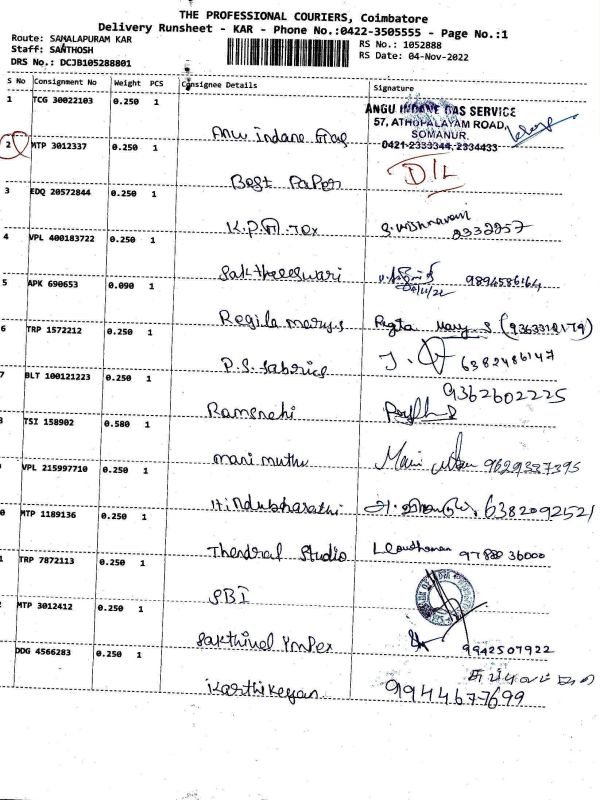 THE PROFESSIONAL COURIERS, Coimbatore
Delivery Runsheet - KAR - Phone No.:0422-3505555 - Page No.:1
Route: SAMALAPURAM KAR
RS No.: 1052888
Staff: SANTHOSH
RS Date: 04-Nov-2022
DRS No.: DCJB105288801
S No Consignment No Weight PCS Consignee Details Signature
1 TCG 30022103 0.250 1
Anu indane Gas
ANGU INDANE GAS SERVICE
57, ATHUPALAYAM ROAD,
SOMANUR.
0421-2333344, 2334433
2 MTP 3012337 0.250 1
Best Paper D/L
3 EDQ 20572844 0.250 1
K.P.G. Tex 2332257
4 VPL 400183722 0.250 1
Saktheeswari 04/11/22 9894586164
5 APK 690653 0.090 1
Regila marys Regila Mary S
6 TRP 1572212 0.250 1
P.S. fabrics 6382486147
7 BLT 100121223 0.250 1
9362602225
Ramsnehi
TSI 158902 0.580 1
mari muthu 9629337395
VPL 215997710 0.250 1
Hindubharathi 6382092521
0 MTP 1189136 0.250 1
Thendral Studio
1 TRP 7872113 0.250 1
SBI
MTP 3012412 0.250 1
Sakthivel Impex 9942507922
DDG 4566283 0.250 1
Karthikeyan 9944677699